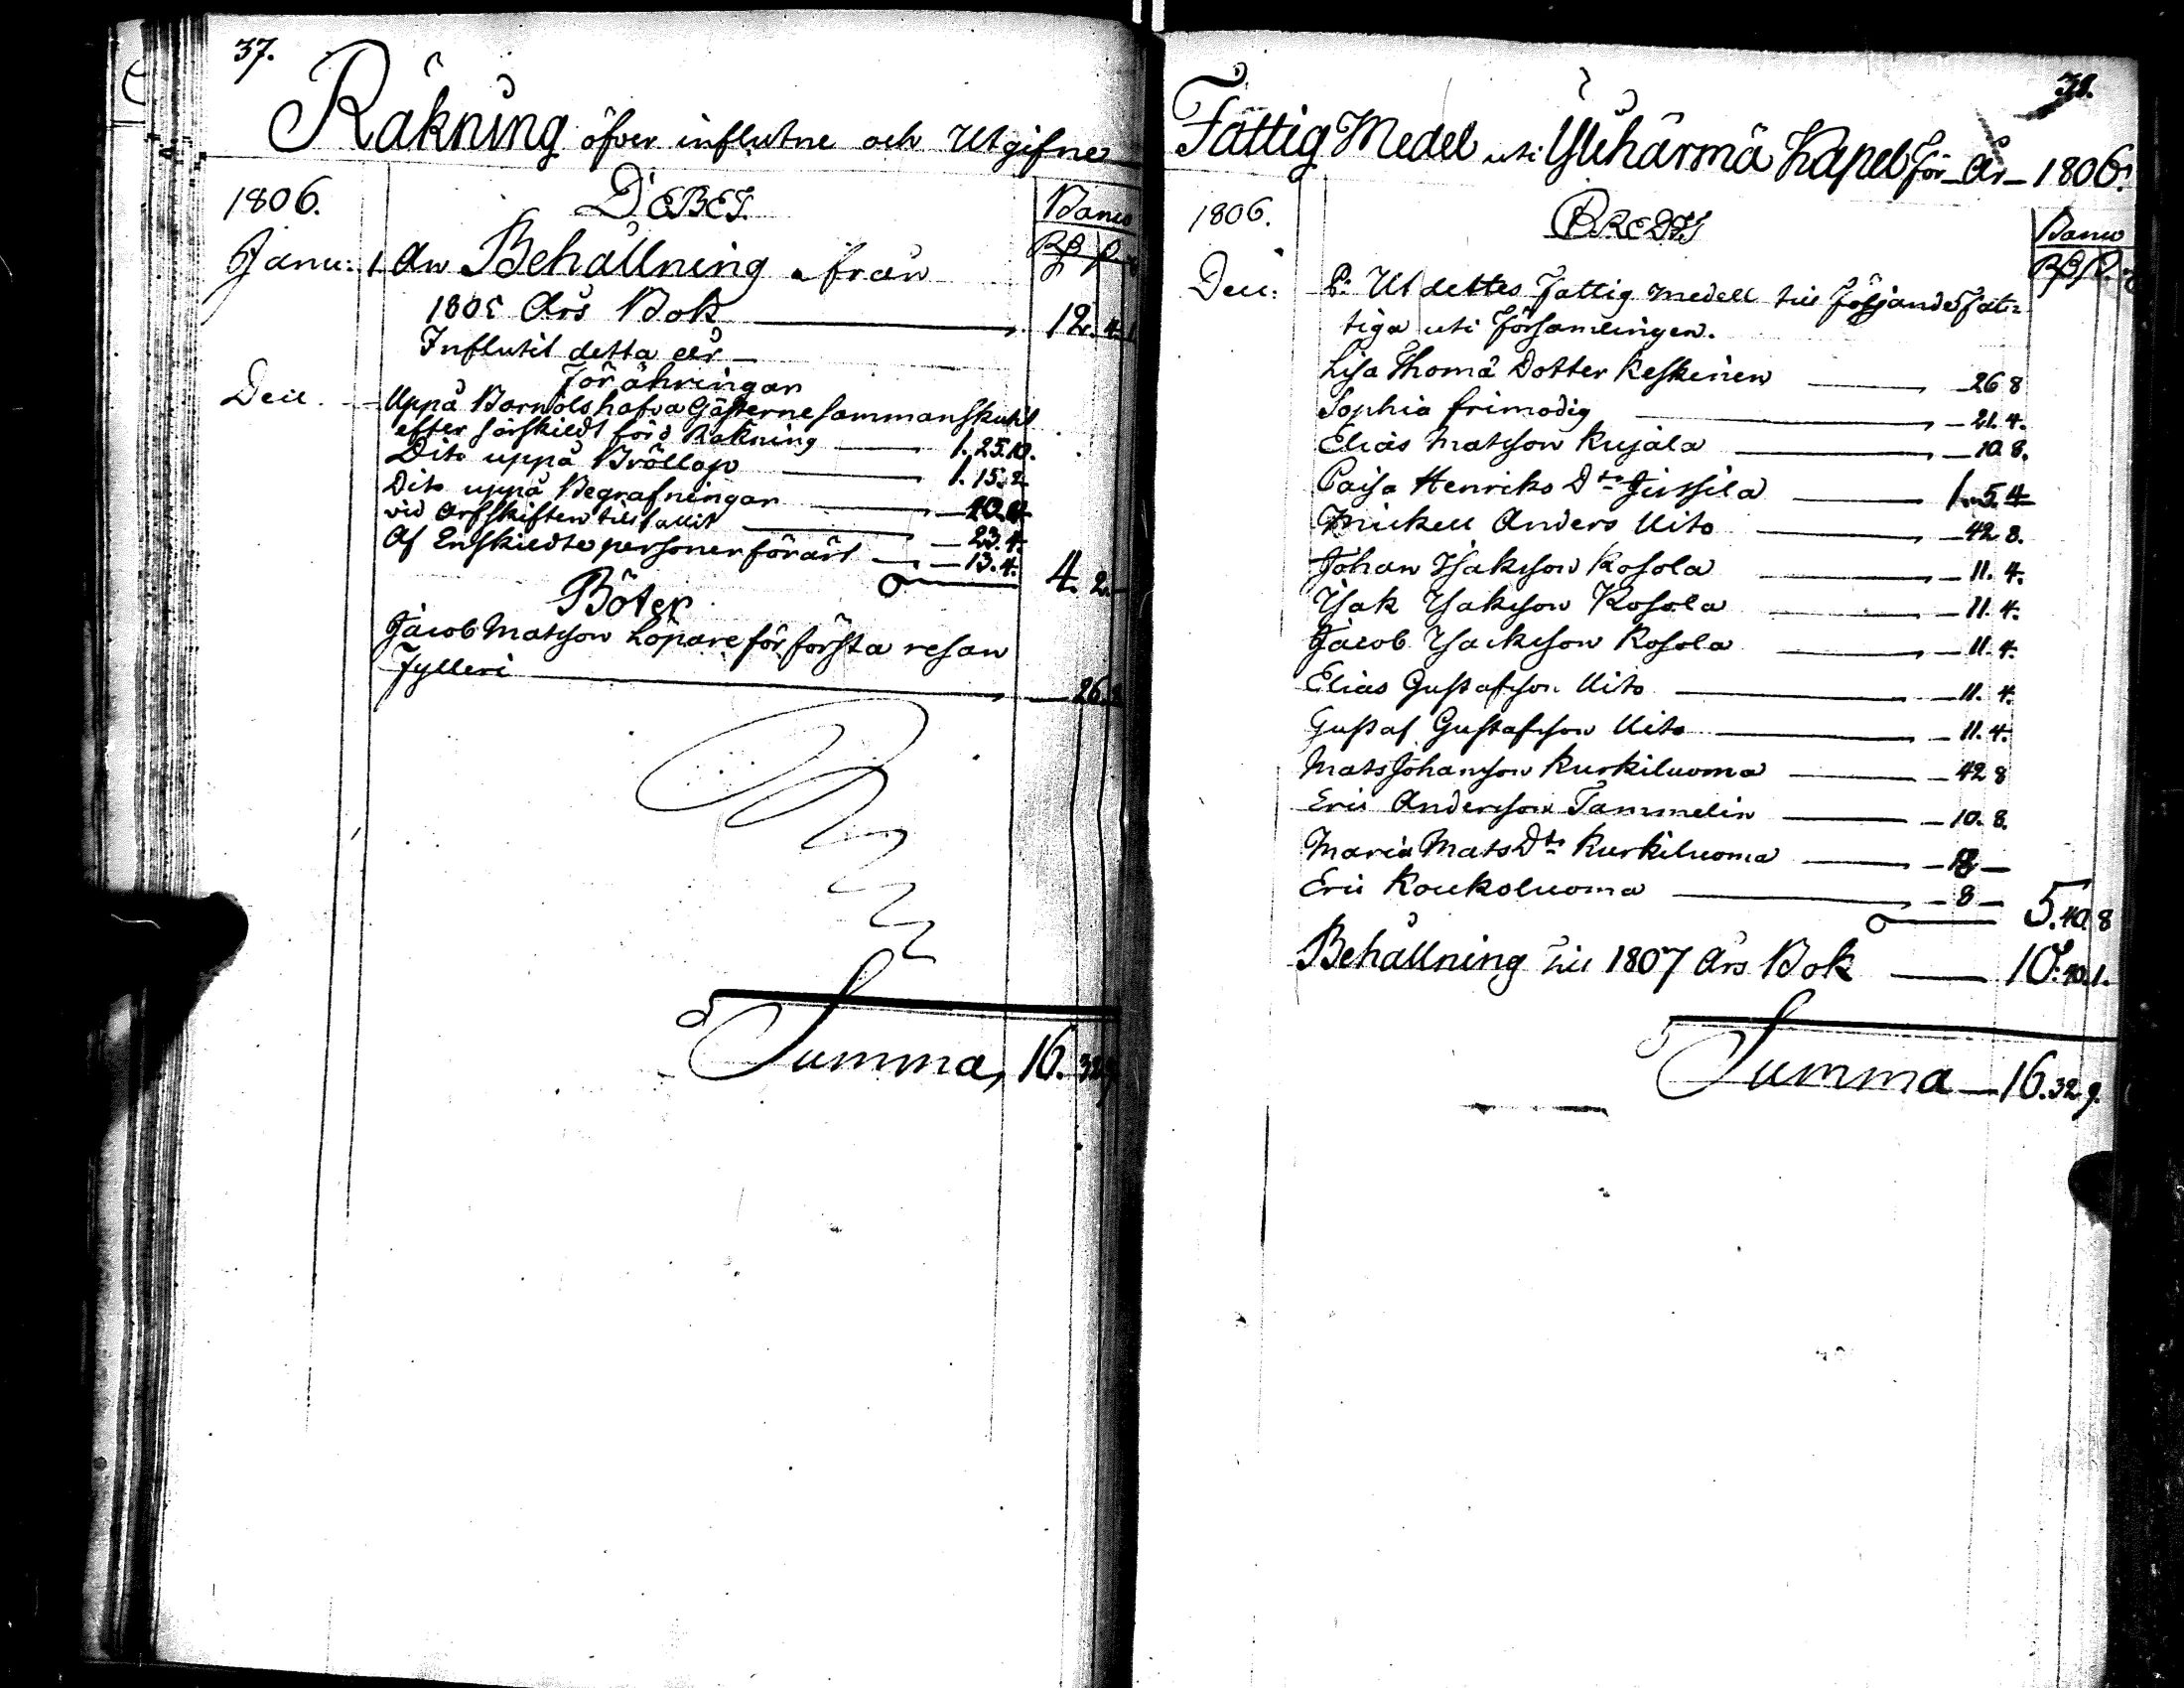 37.
Räkning öfver influtne och Utgifne
1806.
DEBET.
Banco
Janu: 1 An Behållning ifrån
1805 Års Bok 12. 4. 1
Influtit detta åhr
Förähringar
Dec. Uppå Barnölshafva Gästerne sammanskutit
efter särskildt förd Räkning 1. 25. 10.
Dito uppå Bröllop 1. 15. 2
Dito uppå Begrafningar 20. 4
vid Arfskiften tillfallit 23. 4.
Af Enskildte personer förärt 13. 4.
4. 2. —
Böter
Jacob Matsson Löpare för första resan
Fylleri 26. 8
Summa, 16. 32. 9
38.
Fattig Medel uti Ylihärmä Kapel för År 1806.
1806.
CREDIT
Banco
Dec: Pr Utdeltes Fattig medell till följande Fat-
tiga uti Församlingen.
Lisa Thomä Dotter Keskinen 26 8
Sophia Frimodig 21. 4.
Elias Matsson Kujala 10 8.
Caisa Henriks Dtr Jussila 1. 5. 4
Mickell Anders Uito 42 8.
Johan Isaksson Kosola 11. 4.
Isak Isaksson Kosola 11. 4.
Jacob Isacksson Kosola 11. 4.
Elias Gustafsson Uito 11. 4.
Gustaf Gustafsson Uito 11. 4.
Mats Johansson Kurkiluoma 42 8
Eric Andersson Tammelin 10. 8.
Maria Mats Dtr Kurkiluoma —
Eric Koukoluoma 8 —
5. 40. 8
Behållning till 1807 Års Bok 10. 40. 1.
Summa 16. 32 9.